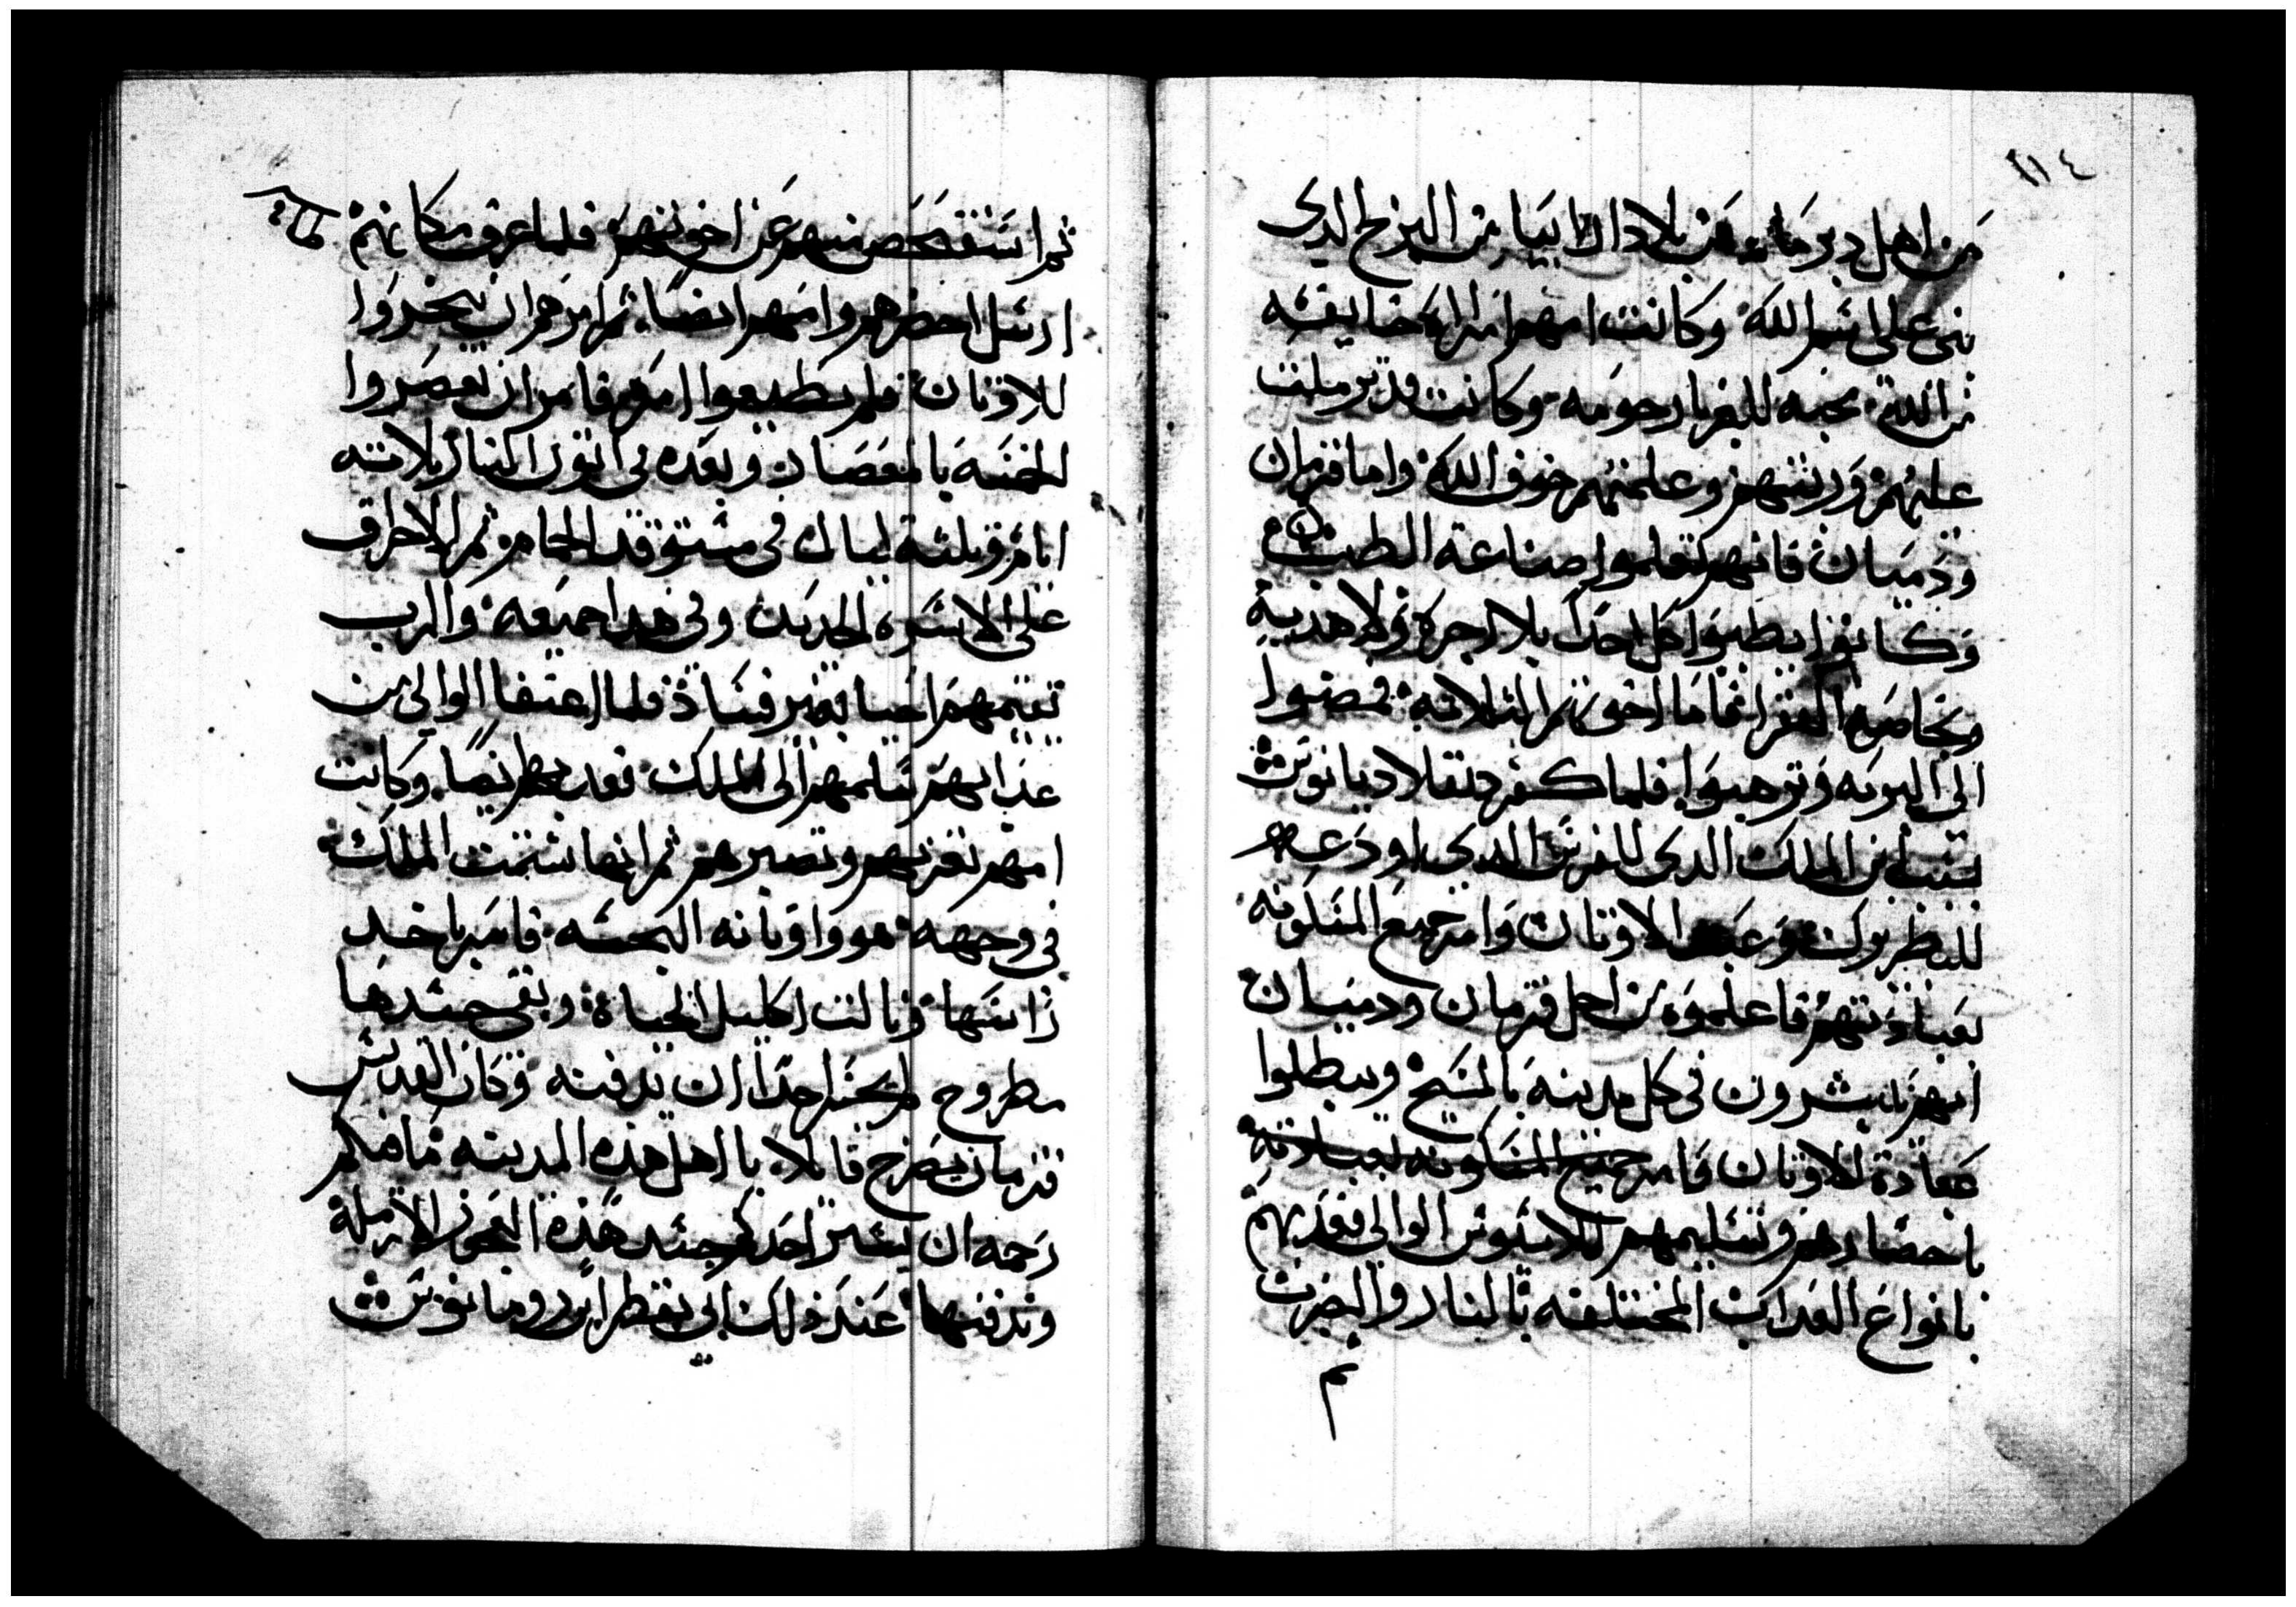 ١١٤
من اهل دبرما من بلاد الارابيا من البرج الدى
بنى على اسم الله وكانت امهم امراة خايفه
من الله محبه للغربا رحومه وكانت قد ترملت
عليهم وربتهم وعلمتهم خوف الله واما قزمان
ودميان فانهم تعلموا صناعة الطب
وكانوا يطببوا كل احدا بلا اجرة ولا هدية
وبخاصه الفقرا فاما اخوتهم الثلاثه فمضوا
الى البريه وترهبوا فلما كفر دقلاديانوس
بسبب ابن الملك الدى للفرس الدى اودعه
للبطريرك وعبد الاوتان وامر جميع المسكونه
بعبادتهم فاعلموه من اجل قزمان ودميان
انهم يبشرون فى كل مدينه بالمسيح ويبطلوا
عبادة للاوتان فامر جميع المسكونه بعبادته
باحضارهم وتسليمهم للاسيوس الوالى فعدبهم
بانواع العداب المختلفه بالنار والضرب
ثم
ثم استفحص منهم عن اخوتهم فلما عرف مكانهم
ارسل احضرهم وامهم ايضا ثم امرهم ان يبخروا
للاوتان فلم يطيعوا امره فامر ان يعصروا
الخمسه بالمعصار وبعده فى اتون النار ثلاثه
ايام وثلثة ليال فى مستوقد الحمام ثم الاحراق
على الاسره الحديد وفى هدا جميعه والرب
يقيمهم احيا بغير فساد فلما اعتفا الوالى من
عدابهم سلمهم الى الملك فعدبهم ايضا وكانت
امهم تعزيهم وتصبرهم ثم انها شتمت الملك
فى وجهه هو واوتانه النجسه فامر باخد
راسها ونالت اكليل الحياة وبقى جسدها
مطروح لم يجسر احدا ان يدفنه وكان القديس
قزمان يصرخ قايلا يا اهل هده المدينه ما فيكم
رحمه ان يستر احدكم جسد هذه العجوز الارملة
ويدفنها عند ذلك اتى بقطر ابن رومانوس